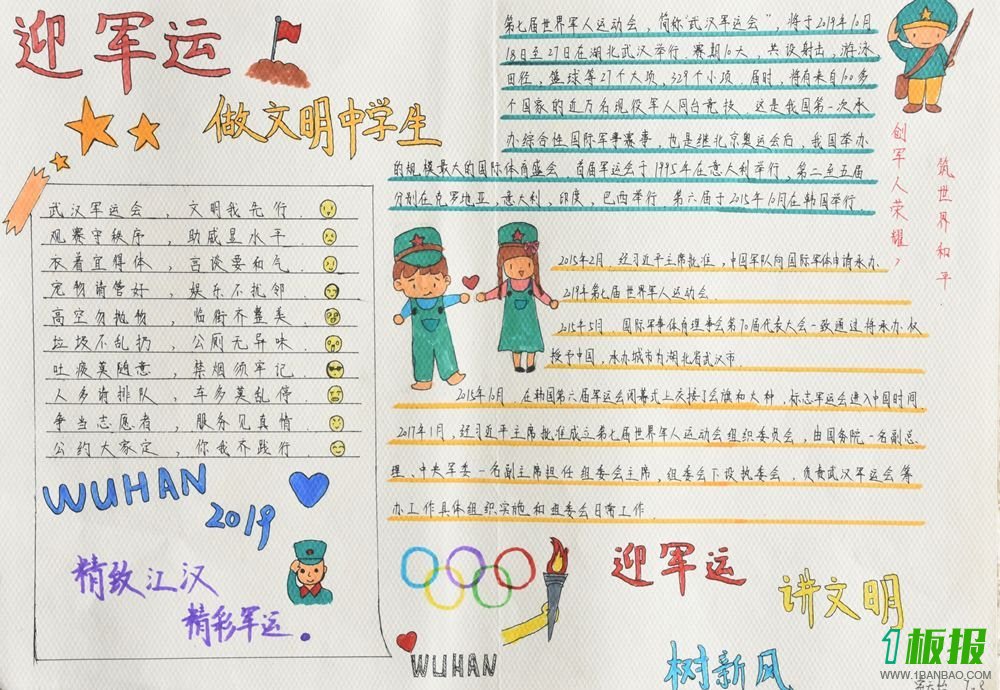 迎军运
做文明中学生
武汉军运会，文明我先行
观赛守秩序，助威显水平
衣着宜得体，言谈要和气
宠物请管好，娱乐不扰邻
高空勿抛物，临街齐整美
垃圾不乱扔，公厕无异味
吐痰莫随意，禁烟须牢记
人多请排队，车多莫乱停
争当志愿者，服务见真情
公约大家定，你我齐践行
WUHAN
2019
精致江汉
精彩军运。
第七届世界军人运动会，简称"武汉军运会"，将于2019年10月
18日至27日在湖北武汉举行.赛期10天，共设射击，游泳
田径，篮球等27个大项，329个小项 届时，将有来自100多
个国家的近万名现役军人同台竞技 这是我国第一次承
办综合性国际军事赛事，也是继北京奥运会后，我国举办
的规模最大的国际体育盛会 首届军运会于1995年在意大利举行，第二至五届
分别在克罗地亚，意大利，印度，巴西举行 第六届于2015年10月在韩国举行
创军人荣耀，
筑世界和平
2015年2月，经习近平主席批准，中国军队向国际军体申请承办
2019年第七届世界军人运动会
2015年5月，国际军事体育理事会第70届代表大会一致通过将承办权
授予中国，承办城市为湖北省武汉市
2015年10月，在韩国第六届军运会闭幕式上交接了会旗和火种，标志军运会进入中国时间.
2017年1月，经习近平主席批准成立第七届世界军人运动会组织委员会，由国务院一名副总
理、中央军委一名副主席担任组委会主席，组委会下设执委会，负责武汉军运会筹
办工作具体组织实施和组委会日常工作
WUHAN
迎军运
讲文明
树新风
1板报
WWW.1BANBAO.COM